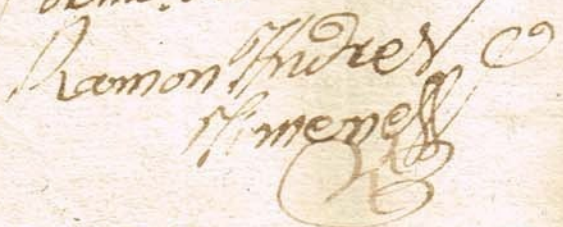 Ramon Andres
Ximenez